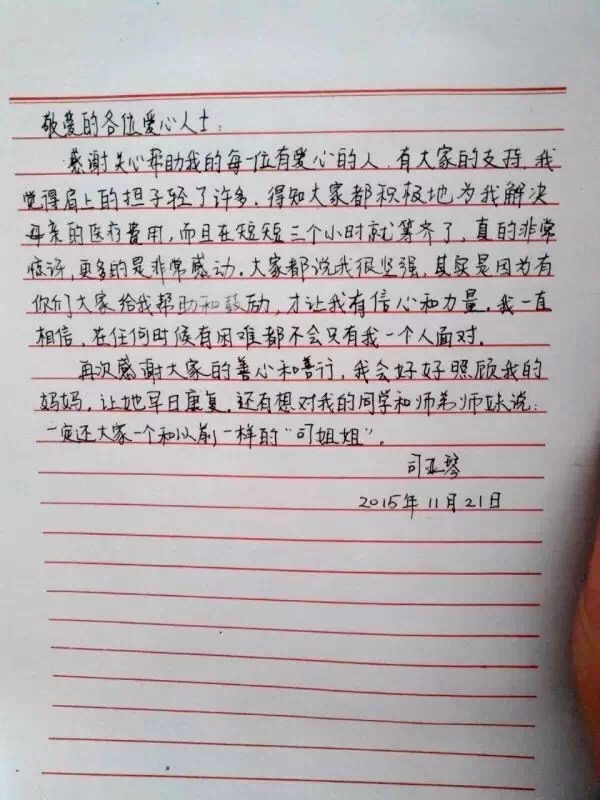 敬爱的各位爱心人士:
感谢关心帮助我的每一位有爱心的人.有大家的支持,我
觉得肩上的担子轻了许多.得知大家都积极地为我解决
母亲的医疗费用,而且在短短三个小时就筹齐了,真的非常
惊讶,更多的是非常感动.大家都说我很坚强,其实是因为有
你们大家给我帮助和鼓励,才让我有信心和力量.我一直
相信,在任何时候有困难都不会只有我一个人面对.
再次感谢大家的善心和善行,我会好好照顾我的
妈妈,让她早日康复.还有想对我的同学和师弟师妹说:
一定还大家一个和以前一样的“司姐姐”.
司亚琴
2015年11月21日